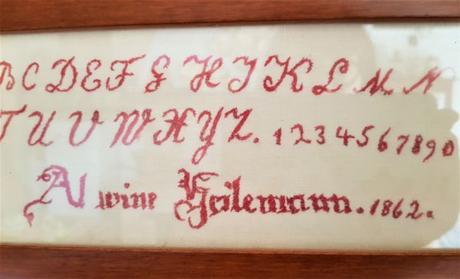 B C D E F G H I J K L M N
T U V W X Y Z. 1 2 3 4 5 6 7 8 9 0
Alwine Heilemann. 1862.